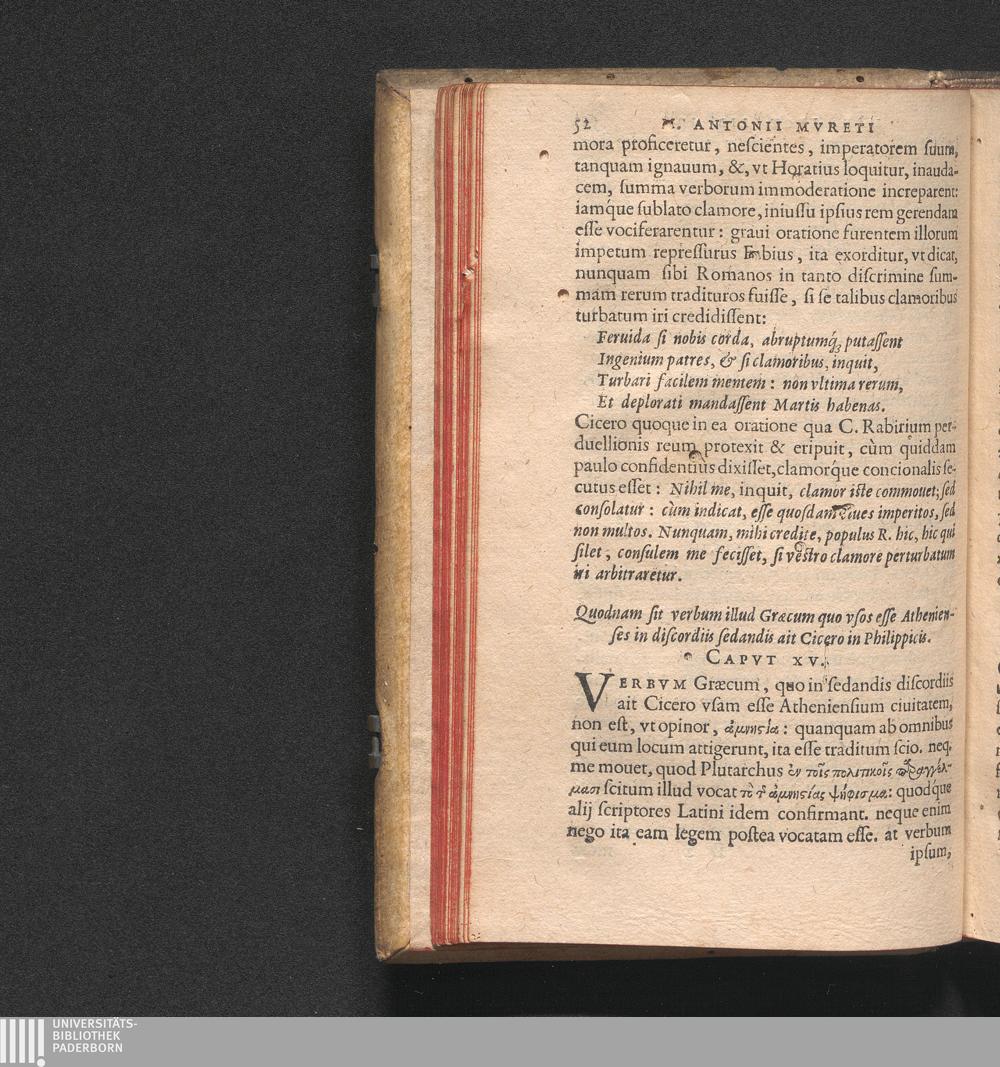 52 M. ANTONII MVRETI
mora proficeretur, neſcientes, imperatorem ſuum,
tanquam ignauum, &, vt Horatius loquitur, inauda-
cem, ſumma verborum immoderatione increparent:
iamq́ue ſublato clamore, iniuſſu ipſius rem gerendam
eſſe vociferarentur: graui oratione furentem illorum
impetum repreſſurus Fabius, ita exorditur, vt dicat,
nunquam ſibi Romanos in tanto diſcrimine ſum-
mam rerum tradituros fuiſſe, ſi ſe talibus clamoribus
turbatum iri credidiſſent:
Feruida ſi nobis corda, abruptumq́; putaſſent
Ingenium patres, & ſi clamoribus, inquit,
Turbari facilem mentem: non vltima rerum,
Et deplorati mandaſſent Martis habenas.
Cicero quoque in ea oratione qua C. Rabirium per-
duellionis reum protexit & eripuit, cùm quiddam
paulo confidentius dixiſſet, clamorq́ue concionalis ſe-
cutus eſſet: Nihil me, inquit, clamor iſte commouet; ſed
conſolatur: cùm indicat, eſſe quoſdam ciues imperitos, ſed
non multos. Nunquam, mihi credite, populus R. hic, hic qui
ſilet, conſulem me feciſſet, ſi veſtro clamore perturbatum
iri arbitraretur.
Quodnam ſit verbum illud Græcum quo vſos eſſe Athenien-
ſes in diſcordiis ſedandis ait Cicero in Philippicis.
CAPVT XV.
VERBVM Græcum, quo in ſedandis diſcordiis
ait Cicero vſam eſſe Athenienſium ciuitatem,
non eſt, vt opinor, ἀμνηςία: quanquam ab omnibus
qui eum locum attigerunt, ita eſſe traditum ſcio. neq.
me mouet, quod Plutarchus ἐν τοῖς πολιτικοῖς παραγγέλ-
μασι ſcitum illud vocat τὸ τῆς ἀμνηςίας ψήφισμα: quodq́ue
alij ſcriptores Latini idem confirmant. neque enim
nego ita eam legem poſtea vocatam eſſe. at verbum
ipſum,
UNIVERSITÄTS-
BIBLIOTHEK
PADERBORN